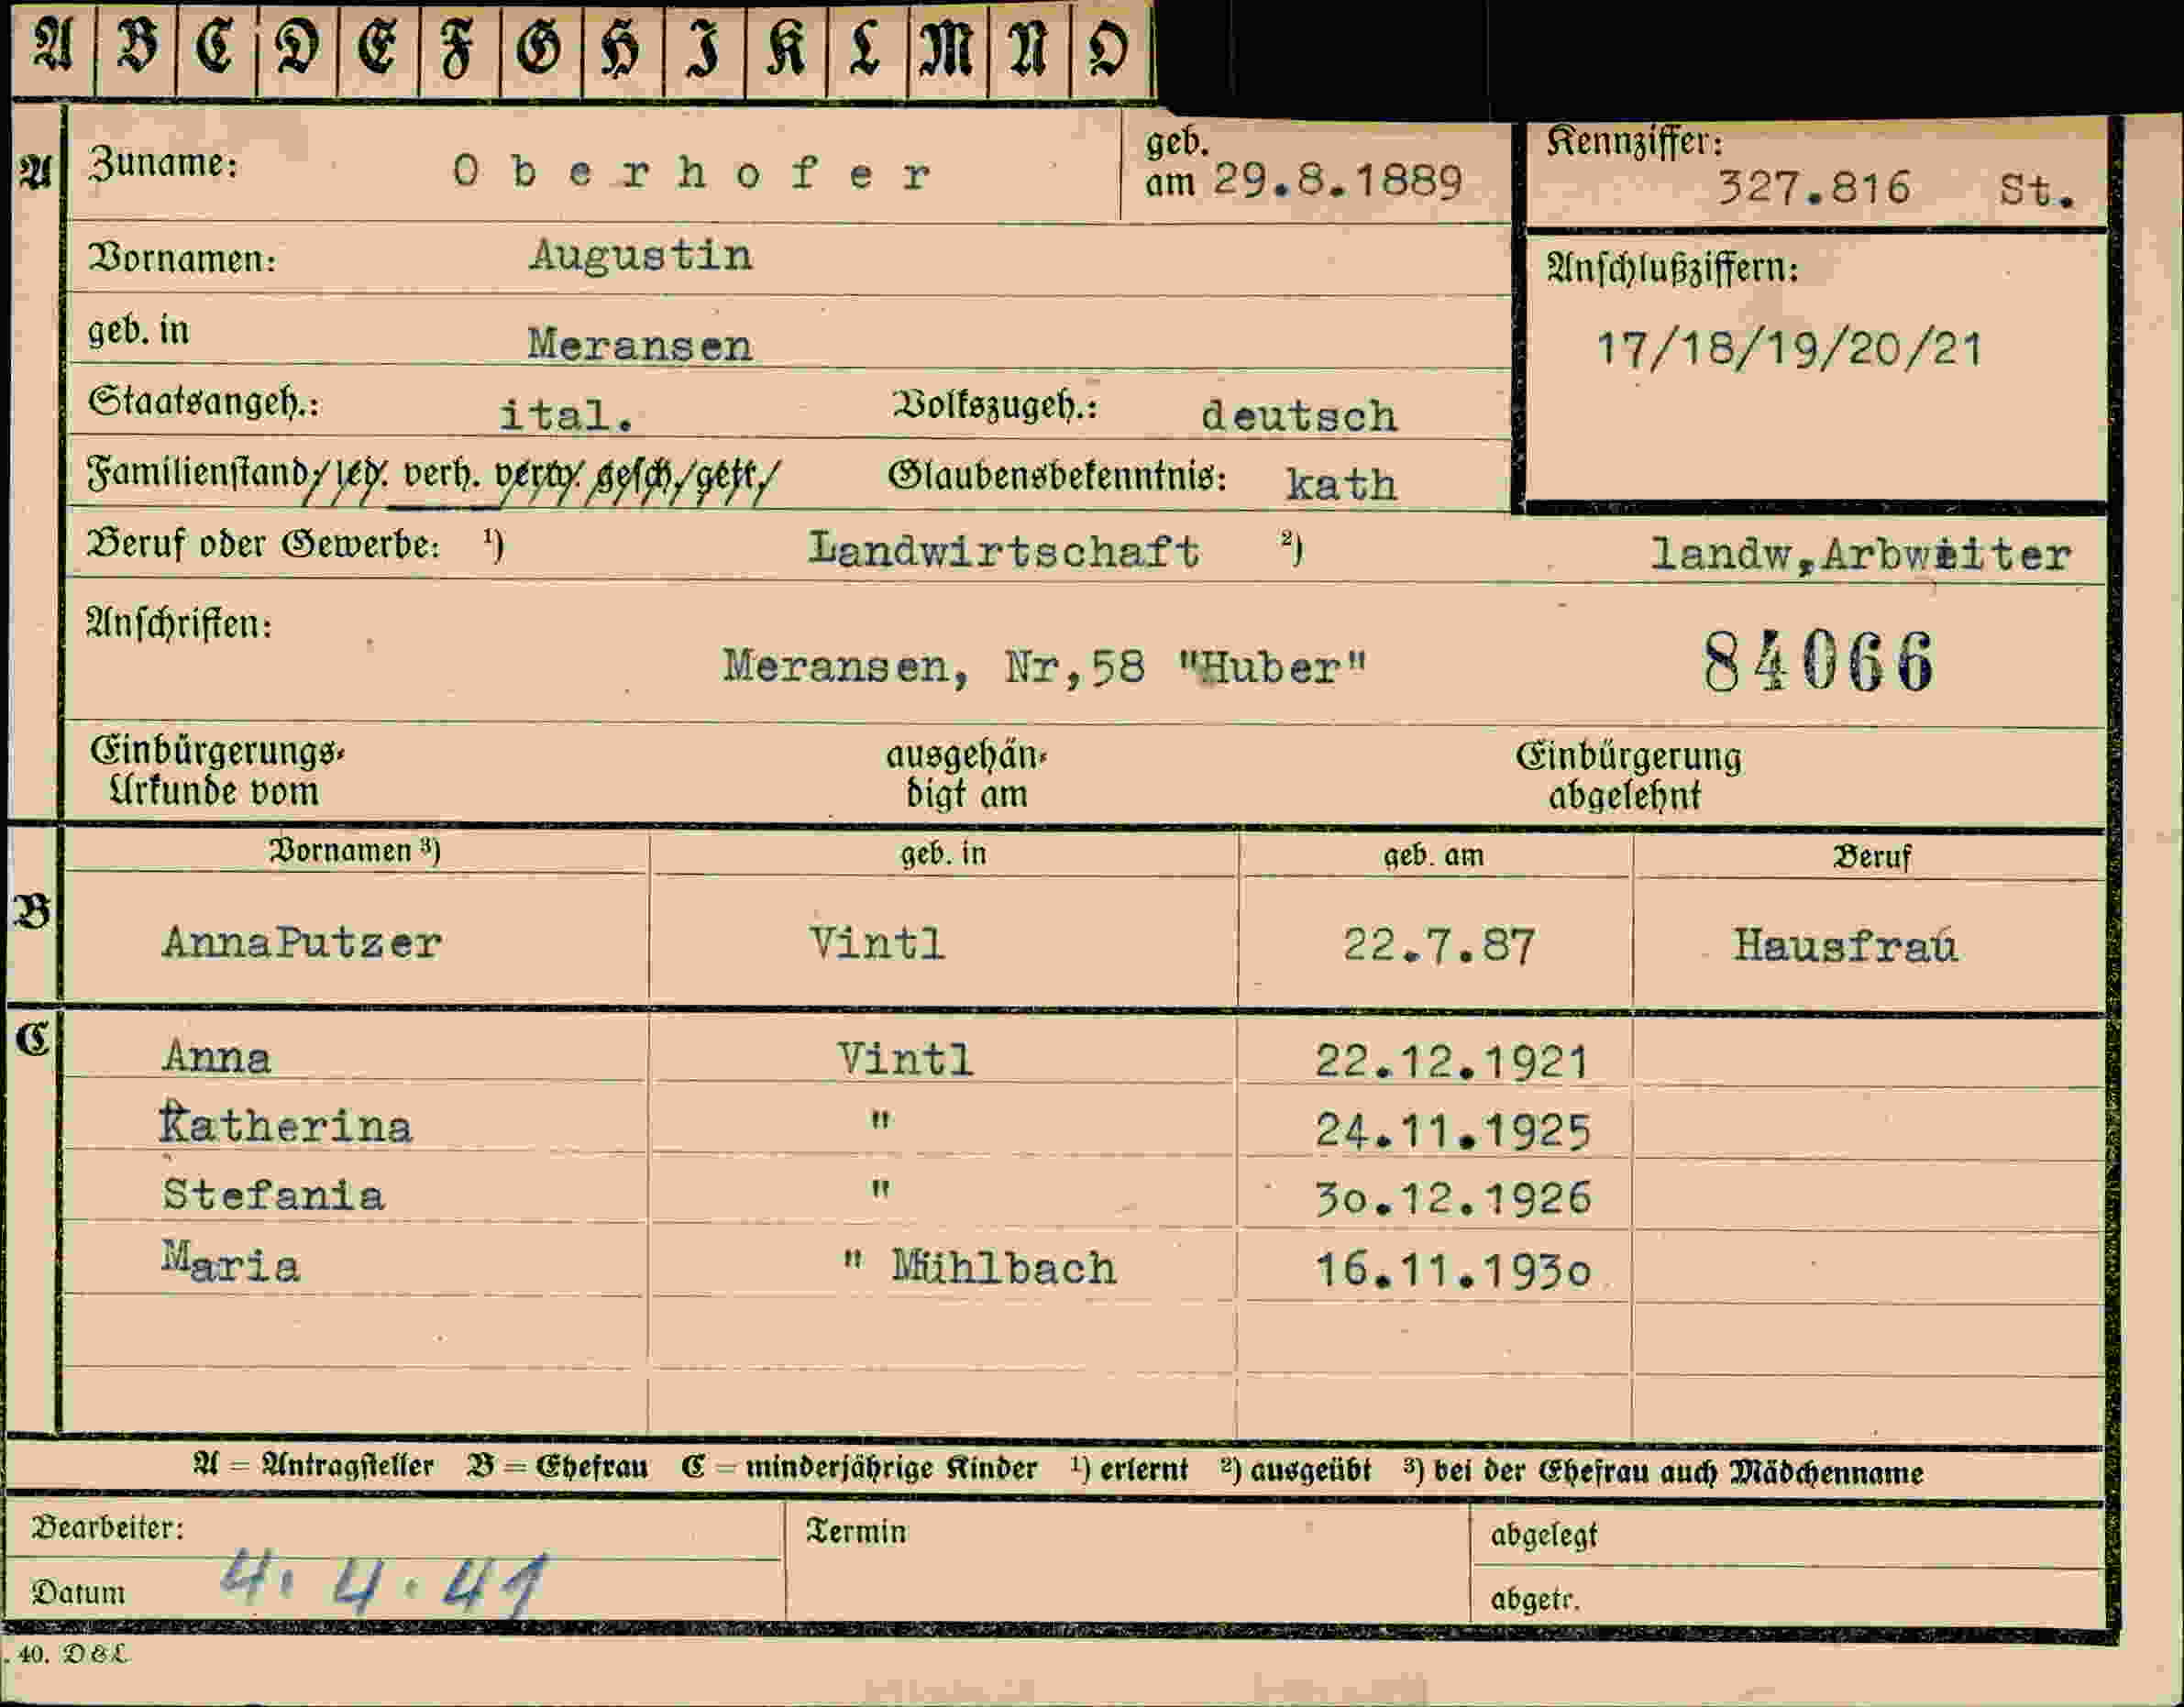 A B C D E F G H I K L M N O
A Zuname: Oberhofer geb. am 29.8.1889 Kennziffer: 327.816 St.
Vornamen: Augustin Anschlußziffern:
geb. in Meransen 17/18/19/20/21
Staatsangeh.: ital. Volkszugeh.: deutsch
Familienstand: led. verh. verw. gesch. getr. Glaubensbekenntnis: kath
Beruf oder Gewerbe: 1) Landwirtschaft 2) landw,Arbeiter
Anschriften:
Meransen, Nr,58 "Huber" 84066
Einbürgerungs- ausgehän- Einbürgerung
Urkunde vom digt am abgelehnt
Vornamen 3) geb. in geb. am Beruf
B AnnaPutzer Vintl 22.7.87 Hausfrau
C Anna Vintl 22.12.1921
Katherina " 24.11.1925
Stefania " 30.12.1926
Maria " Mühlbach 16.11.1930
A = Antragsteller B = Ehefrau C = minderjährige Kinder 1) erlernt 2) ausgeübt 3) bei der Ehefrau auch Mädchenname
Bearbeiter: Termin abgelegt
Datum 4. 4. 41 abgetr.
. 40. D&L